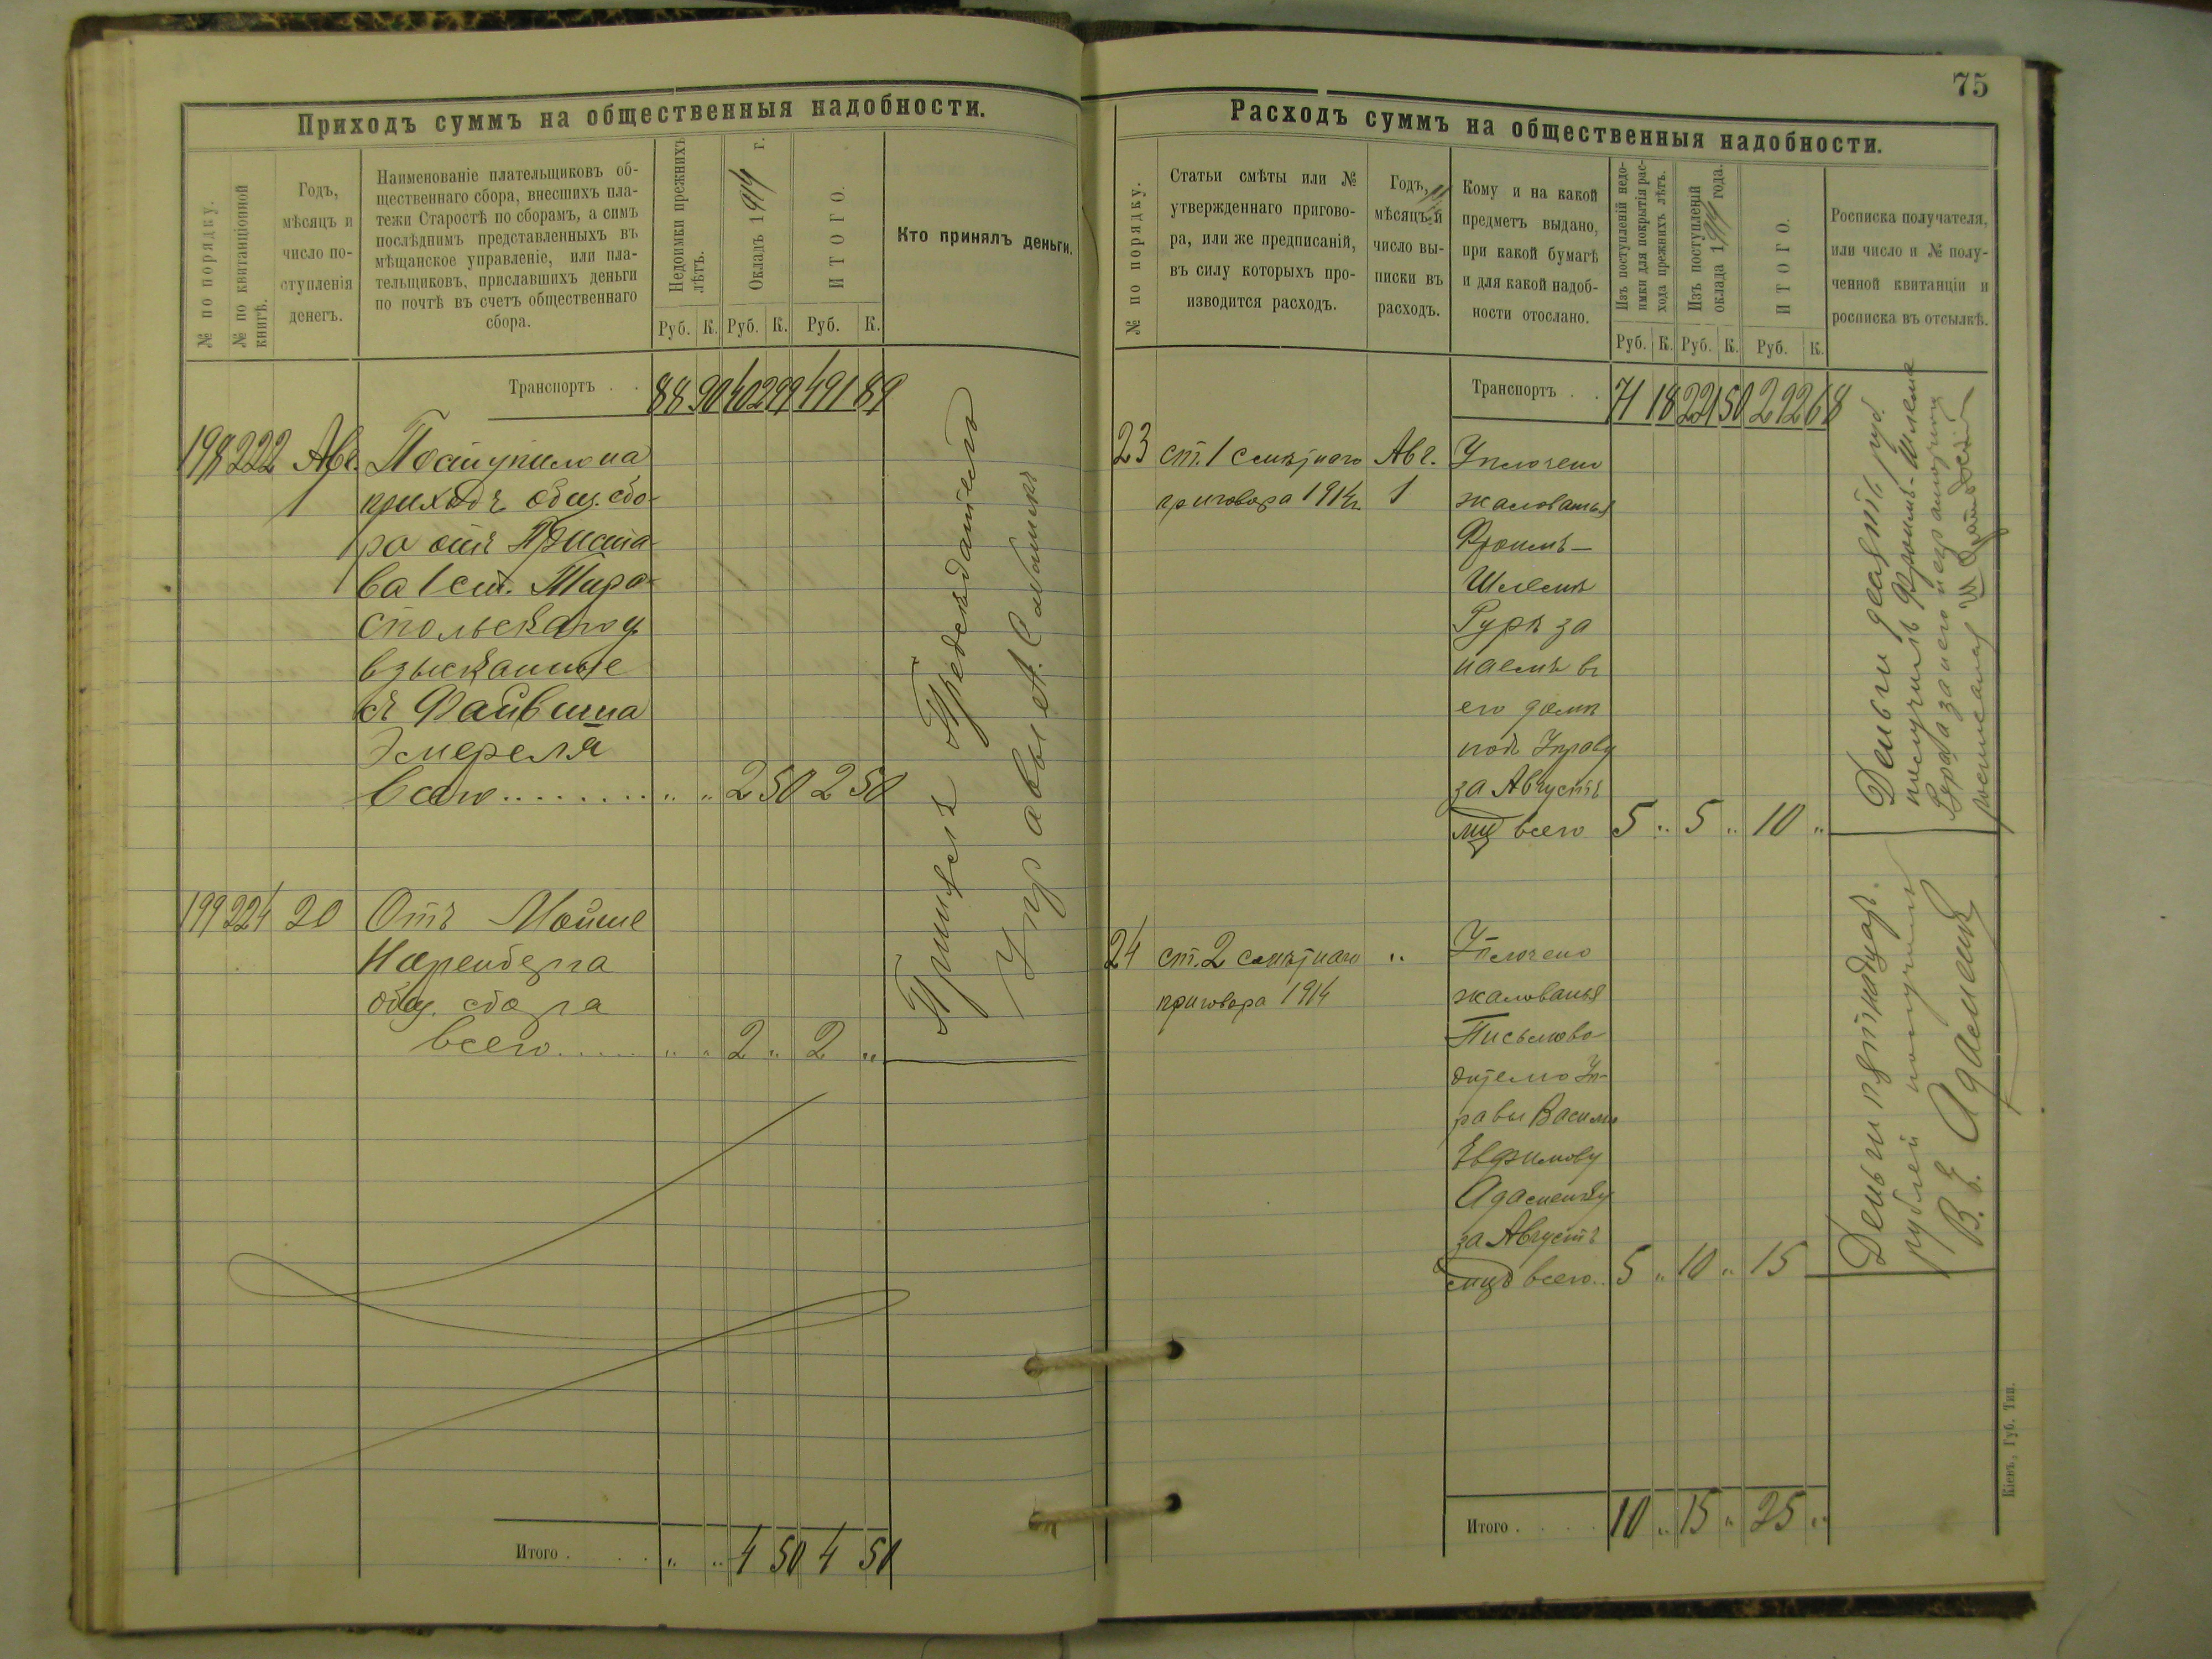 Приходъ суммъ на общественныя надобности.
№ по порядку.
№ по квитанціонной
книгѣ.
Годъ,
мѣсяцъ и
число по-
ступленія
денегъ.
Наименованіе плательщиковъ об-
щественнаго сбора, внесшихъ пла-
тежи Старостѣ по сборамъ, а симъ
послѣднимъ представленныхъ въ
мѣщанское управленіе, или пла-
тельщиковъ, приславшихъ деньги
по почтѣ въ счетъ общественнаго
сбора.
Недоимки прежнихъ
лѣтъ.
Окладъ 1914 г.
ИТОГО.
Кто принялъ деньги.
Руб. К. Руб. К. Руб. К.
Транспортъ . . 88 90 402 99 491 89
198 222 Авг. Поступило на
1 приходъ общ. сбо-
ра отъ Пристава
ва 1 ст. Тира-
спольскаго у.
взысканные
съ Файвиша
Эмереля
всего . . . . . . . . „ „ 2 50 2 50
199 224 20 Отъ Мойше
Неренберга
общ. сбора
всего . . . . . „ „ 2 „ 2 „
Принялъ Предсѣдатель
Управы А.
Итого . . . „ „ 4 50 4 50
75
Расходъ суммъ на общественныя надобности.
№ по порядку.
Статьи смѣты или №
утвержденнаго пригово-
ра, или же предписаній,
въ силу которыхъ про-
изводится расходъ.
Годъ,
мѣсяцъ и
число вы-
писки въ
расходъ.
Кому и на какой
предметъ выдано,
при какой бумагѣ
и для какой надоб-
ности отослано.
Изъ поступленій недо-
имки для покрытія рас-
хода прежнихъ лѣтъ.
Изъ поступленій
оклада 1914 года.
ИТОГО.
Росписка получателя,
или число и № полу-
ченной квитанціи и
росписка въ отсылкѣ.
Руб. К. Руб. К. Руб. К.
Транспортъ . . 71 18 221 50 292 68
23 ст. 1 смѣтнаго Авг. Уплочено
приговора 1914 г. 1 жалованья
Фроимъ-
Шлемѣ
Гурѣ за
наемъ въ
его домѣ
подъ Управу
за Августъ
мц всего 5 „ 5 „ 10 „
Деньги десять руб.
получилъ Фроимъ-Шлема
Гура а за него неграмотнаго
росписался
24 ст. 2 смѣтнаго „ Уплочено
приговора 1914 жалованья
Письмово-
дителю Уп-
равы Василію
Евфимову
Адаменку
за Августъ
мцъ всего . . 5 „ 10 „ 15
Деньги пятнадцать
рублей получилъ
В. Е. Адаменко
Итого . . . . 10 „ 15 „ 25 „
Кіевъ, Губ. Тип.